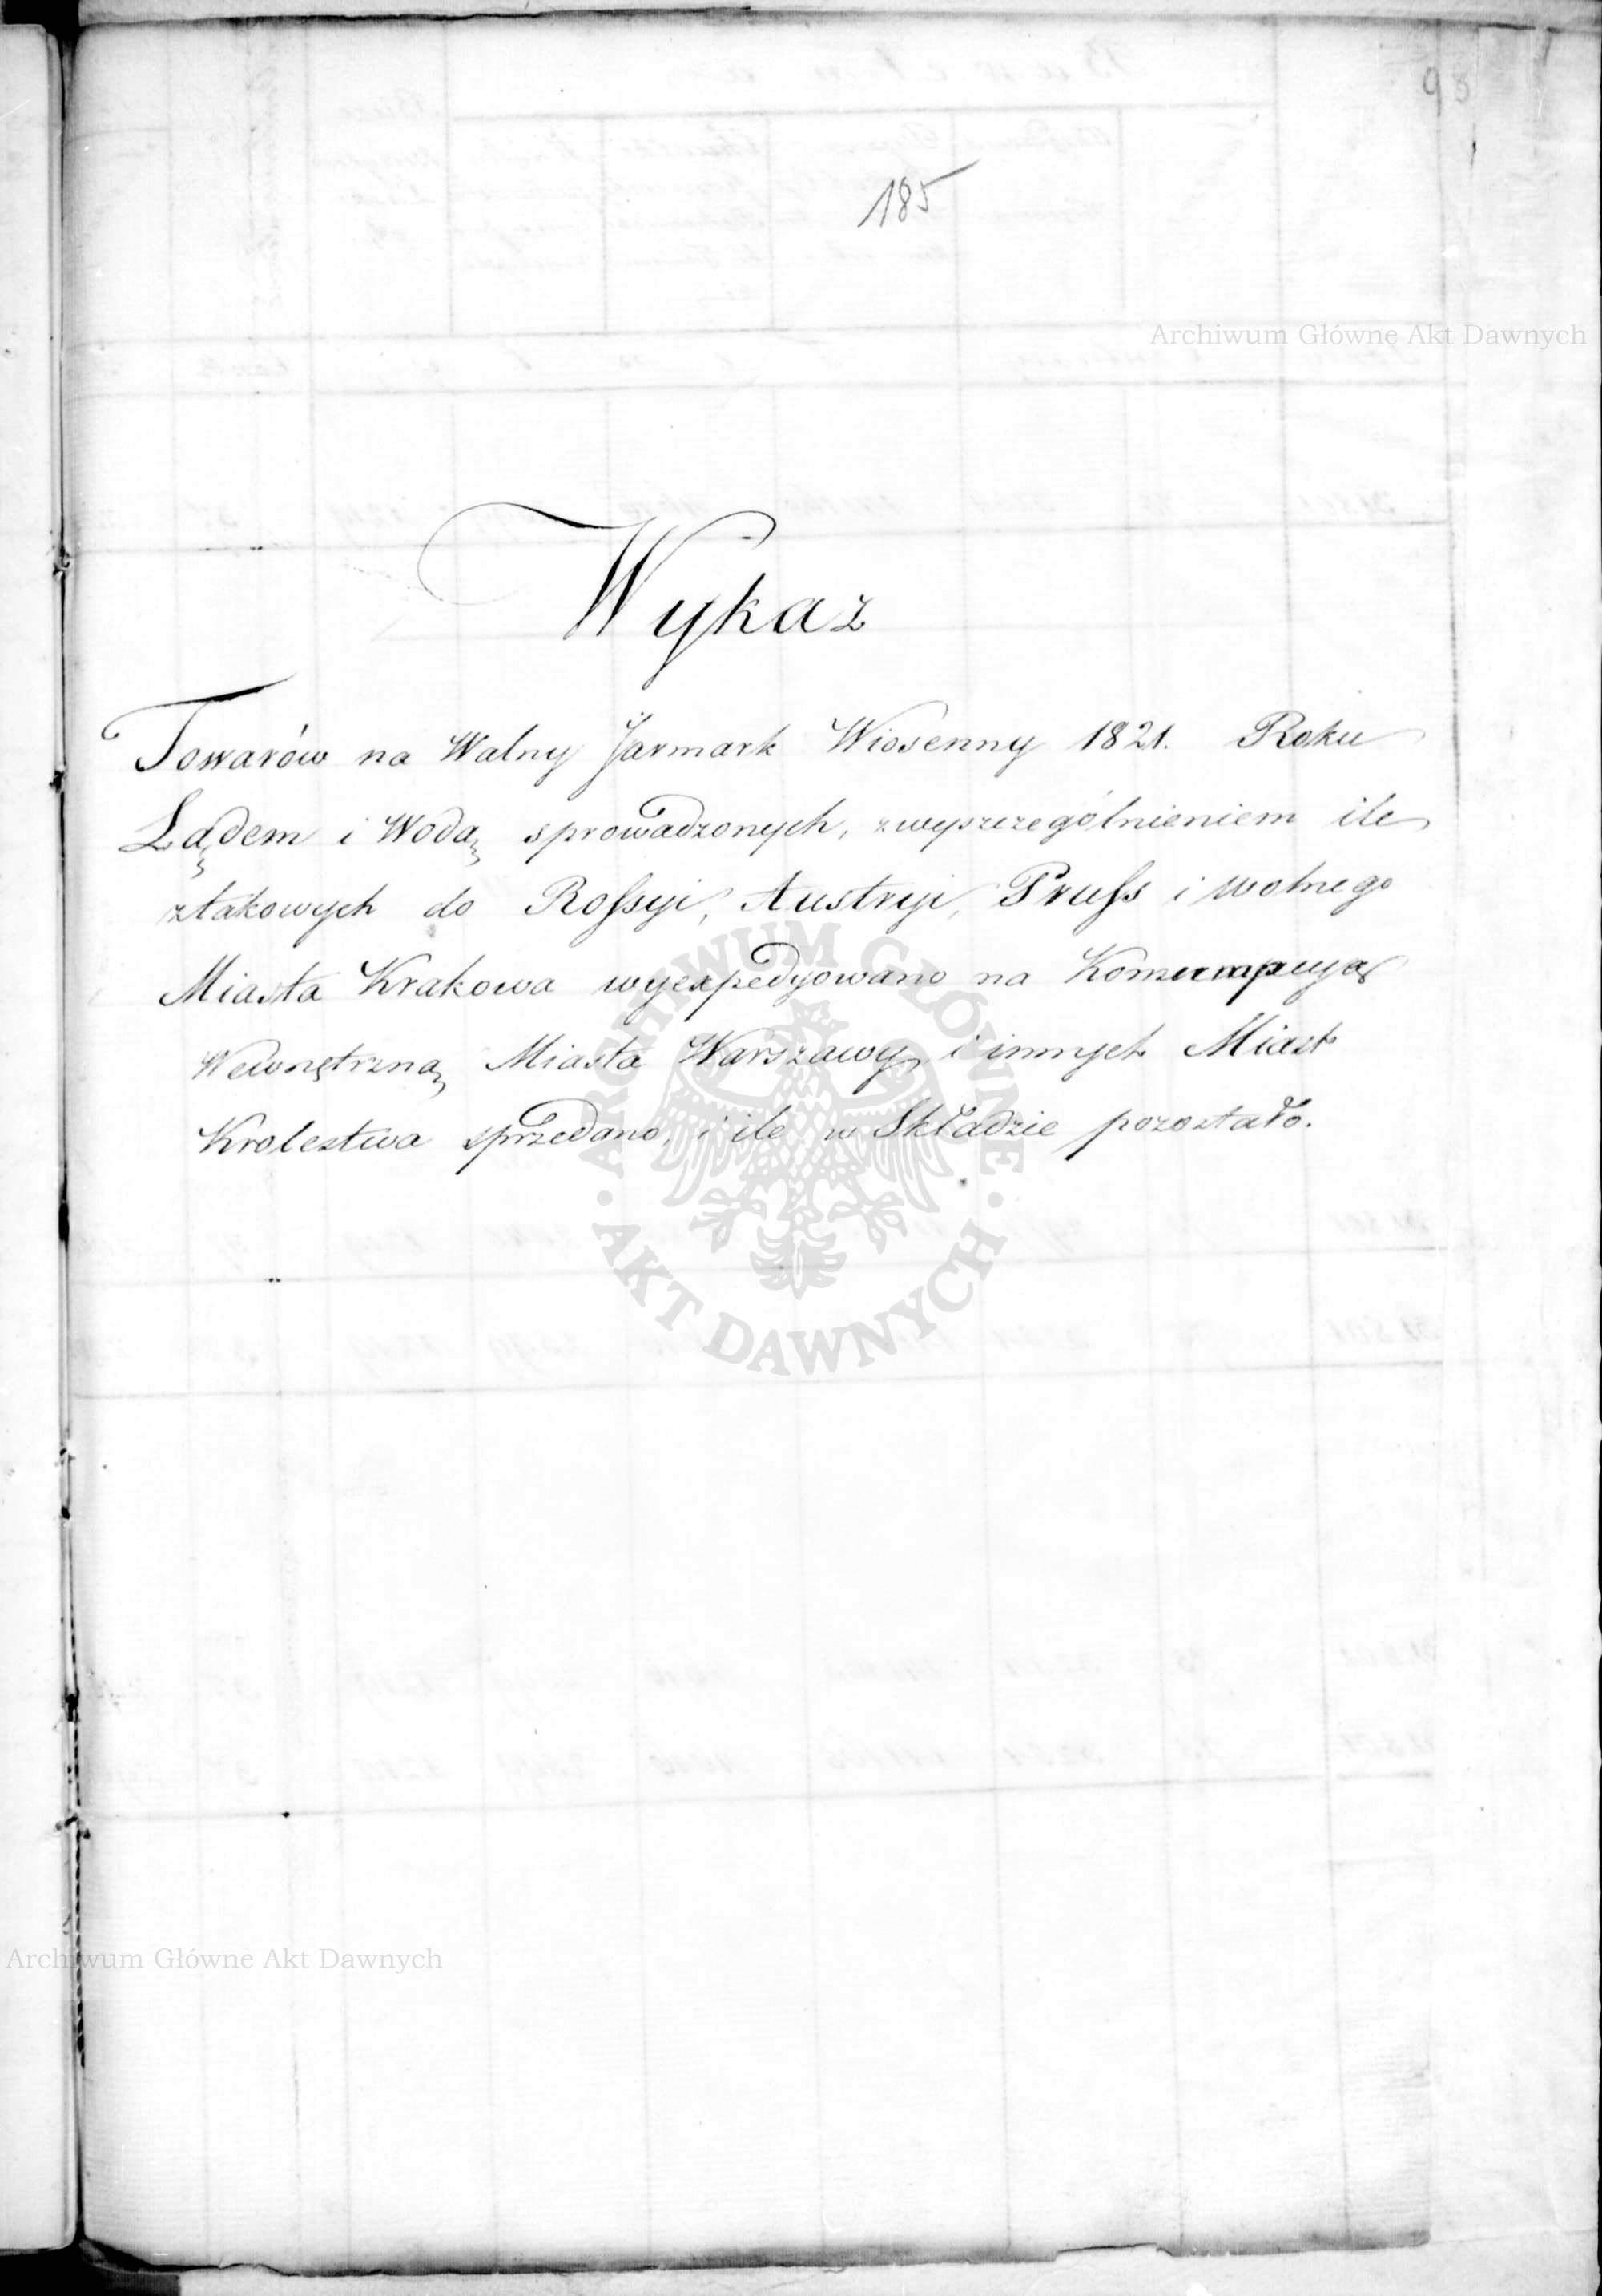 93
185
Archiwum Główne Akt Dawnych
Wykaz
Towarów na Walny Jarmark Wiosenny 1821. Roku
Lądem i Wodą sprowadzonych, z wyszczególnieniem ile
ztakowych do Rossyi, Austryi, Pruss i wolnego
Miasta Krakowa wyexpedyowano na Konsumpcyą
Wewnętrzną Miasta Warszawy i innych Miast
Krolestwa sprzedano, i ile w Składzie pozostało.
ARCHIWUM GŁÓWNE · AKT DAWNYCH ·
Archiwum Główne Akt Dawnych